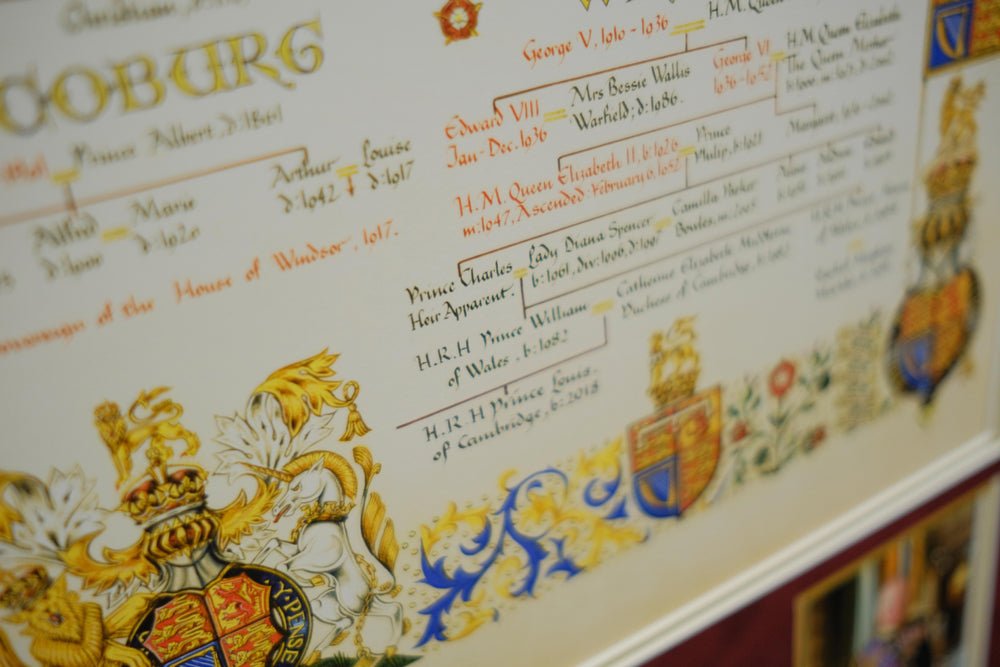 COBURG
Prince Albert, d:1861
Arthur
d:1942
Louise
d:1917
Alfred
d:1900
Marie
d:1920
Sovereign of the House of Windsor, 1917.
George V, 1910 - 1936
H.M. Queen
Edward VIII
Jan-Dec. 1936
Mrs Bessie Wallis
Warfield; d:1986.
George VI
1936-1952
H.M. Queen Elizabeth
The Queen Mother
H.M. Queen Elizabeth II, b:1926
m:1947, Ascended February 6, 1952
Prince
Philip, b:1921
Margaret,
Prince Charles
Heir Apparent.
Lady Diana Spencer
b:1961, div:1996, d:1997
Camilla Parker
Bowles, m:2005
H.R.H Prince William
of Wales, b:1982
Catherine Elizabeth Middleton
Duchess of Cambridge, b:1982
H.R.H Prince Louis.
of Cambridge, b:2018
Y·PENSE